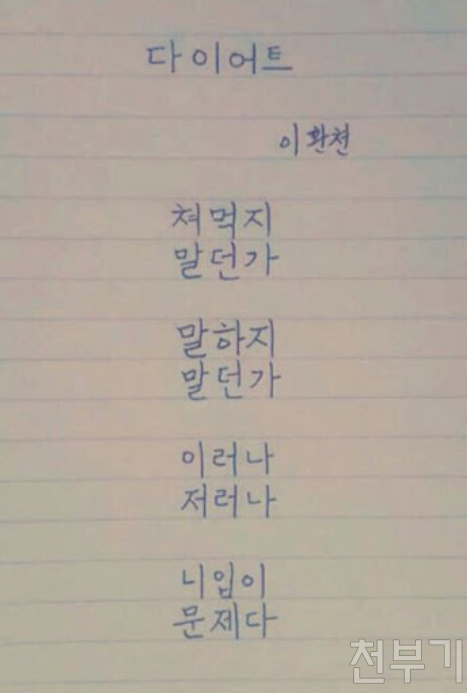 다이어트
이환천
쳐먹지
말던가
말하지
말던가
이러나
저러나
니입이
문제다
천부기